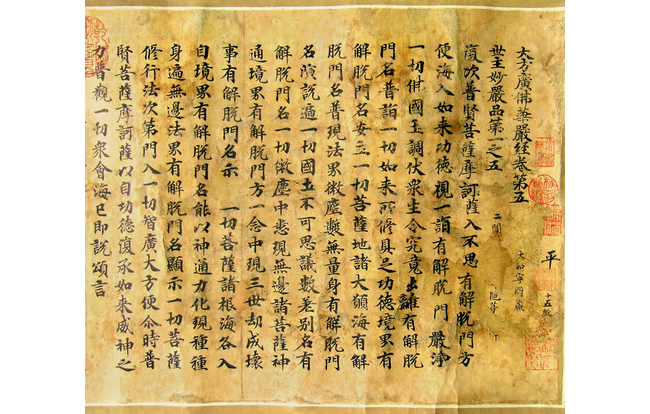 平
十五紙
大和寧國藏
大方廣佛華嚴経卷第五
世主妙嚴品第一之五
復次普賢菩薩摩訶薩入不思有解脫門方
便海入如来功德視一謂有解脫門 嚴淨
一切佛國玉調伏衆生令究竟出離有解脫
門名普詣一切如来所修具足功德境界有
解脫門名安立一切菩薩地諸大願海有解
脫門名普現法界微塵數無量身有解脫門
名演說遍一切國土不可思議數差別名有
解脫門名一切微塵中悉現無邊諸菩薩神
通境界有解脫門方一念中現三世劫成壞
事有解脫門名示 一切菩薩諸根海各入
自境界有解脫門名能以神通力化現種種
身遍無邊法界有解脫門名顯示一切菩薩
修行法次第門入一切智廣大方便尒時普
賢菩薩摩訶薩以自功德復承如来威神之
力普觀一切衆會海已即說頌言